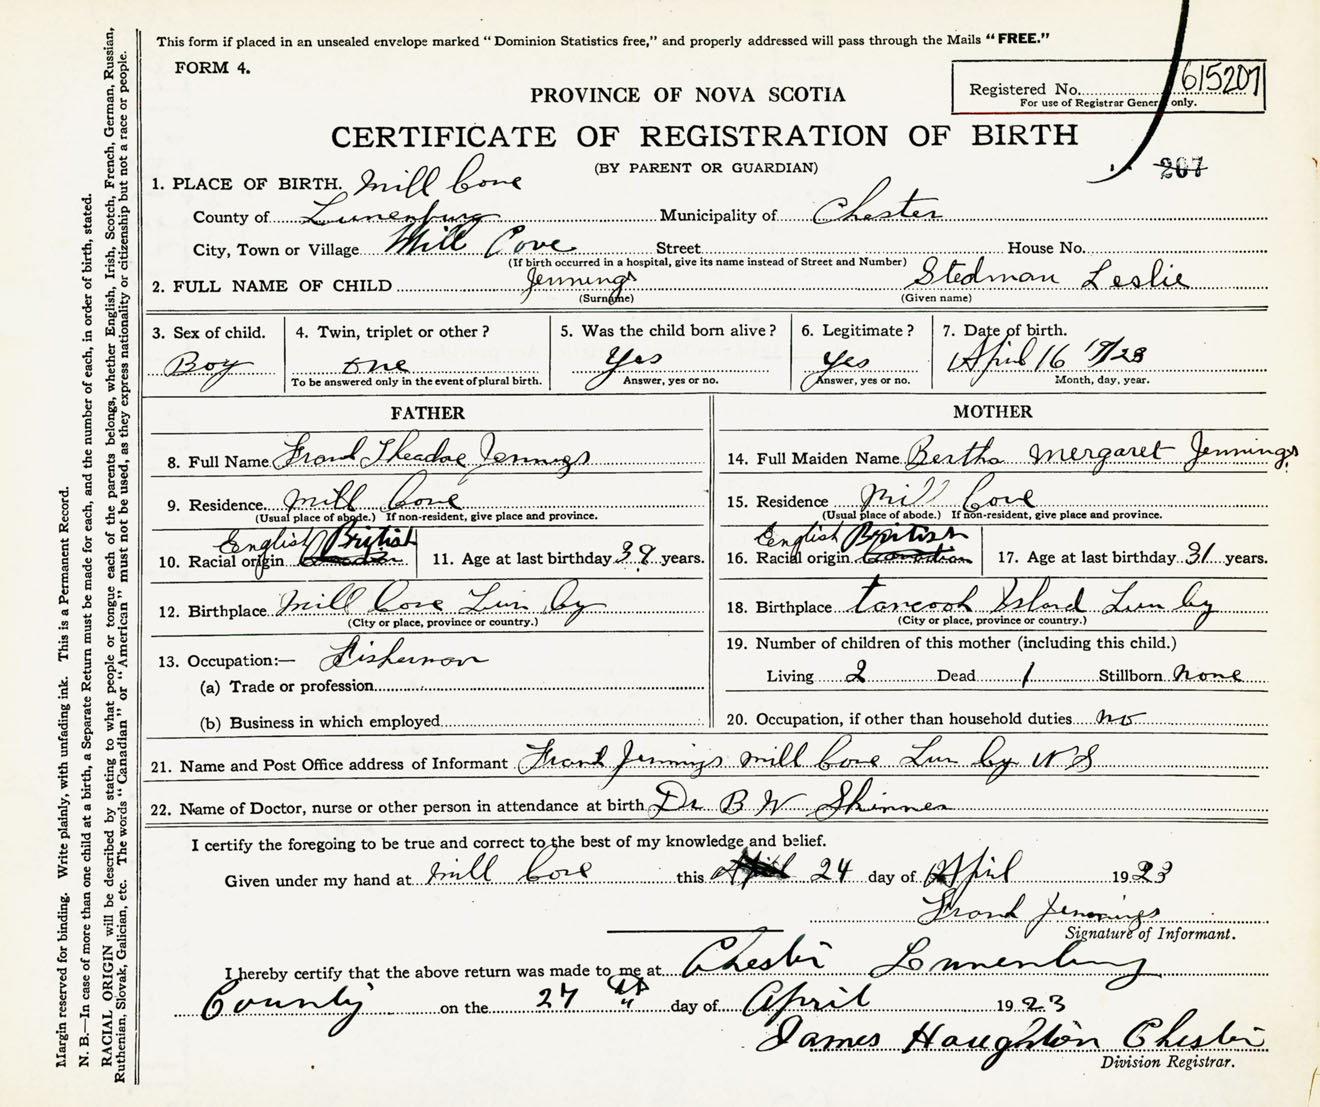 This form if placed in an unsealed envelope marked "Dominion Statistics free," and properly addressed will pass through the Mails "FREE."
FORM 4.
Registered No. 615207
For use of Registrar General only.
PROVINCE OF NOVA SCOTIA
CERTIFICATE OF REGISTRATION OF BIRTH
(BY PARENT OR GUARDIAN)
207
1. PLACE OF BIRTH. Mill Cove
County of Lunenburg Municipality of Chester
City, Town or Village Mill Cove Street House No.
(If birth occurred in a hospital, give its name instead of Street and Number)
2. FULL NAME OF CHILD Jennings Stedman Leslie
(Surname) (Given name)
3. Sex of child. 4. Twin, triplet or other? 5. Was the child born alive? 6. Legitimate? 7. Date of birth.
Boy one Yes Yes April 16 1923
To be answered only in the event of plural birth. Answer, yes or no. Answer, yes or no. Month, day, year.
FATHER
8. Full Name Jennings
9. Residence Mill Cove
(Usual place of abode.) If non-resident, give place and province.
English British
10. Racial origin 11. Age at last birthday years.
12. Birthplace Mill Cove Lun
(City or place, province or country.)
13. Occupation:— Fisherman
(a) Trade or profession
(b) Business in which employed
MOTHER
14. Full Maiden Name Bertha Mergaret Jennings
15. Residence Mill Cove
(Usual place of abode.) If non-resident, give place and province.
English British
16. Racial origin 17. Age at last birthday 31 years.
18. Birthplace Tancook Island Lun
(City or place, province or country.)
19. Number of children of this mother (including this child.)
Living 2 Dead 1 Stillborn None
20. Occupation, if other than household duties no
21. Name and Post Office address of Informant Jennings Mill Cove Lun N S
22. Name of Doctor, nurse or other person in attendance at birth Dr B W Skinner
I certify the foregoing to be true and correct to the best of my knowledge and belief.
Given under my hand at Mill Cove this 24 day of April 1923
Jennings
Signature of Informant.
I hereby certify that the above return was made to me at Chester Lunenburg
County on the 27 day of April 1923
James Haughton Chester
Division Registrar.
Margin reserved for binding. Write plainly, with unfading ink. This is a Permanent Record.
N. B.—In case of more than one child at a birth, a Separate Return must be made for each, and the number of each, in order of birth, stated.
RACIAL ORIGIN will be described by stating to what people or tongue each of the parents belongs, whether English, Irish, Scotch, French, German, Russian,
Ruthenian, Slovak, Galician, etc. The words "Canadian" or "American" must not be used, as they express nationality or citizenship but not a race or people.